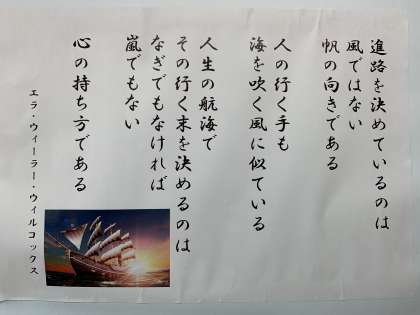 進路を決めているのは
風ではない
帆の向きである
人の行く手も
海を吹く風に似ている
人生の航海で
その行く末を決めるのは
なぎでもなければ
嵐でもない
心の持ち方である
エラ・ウィーラー・ウィルコックス